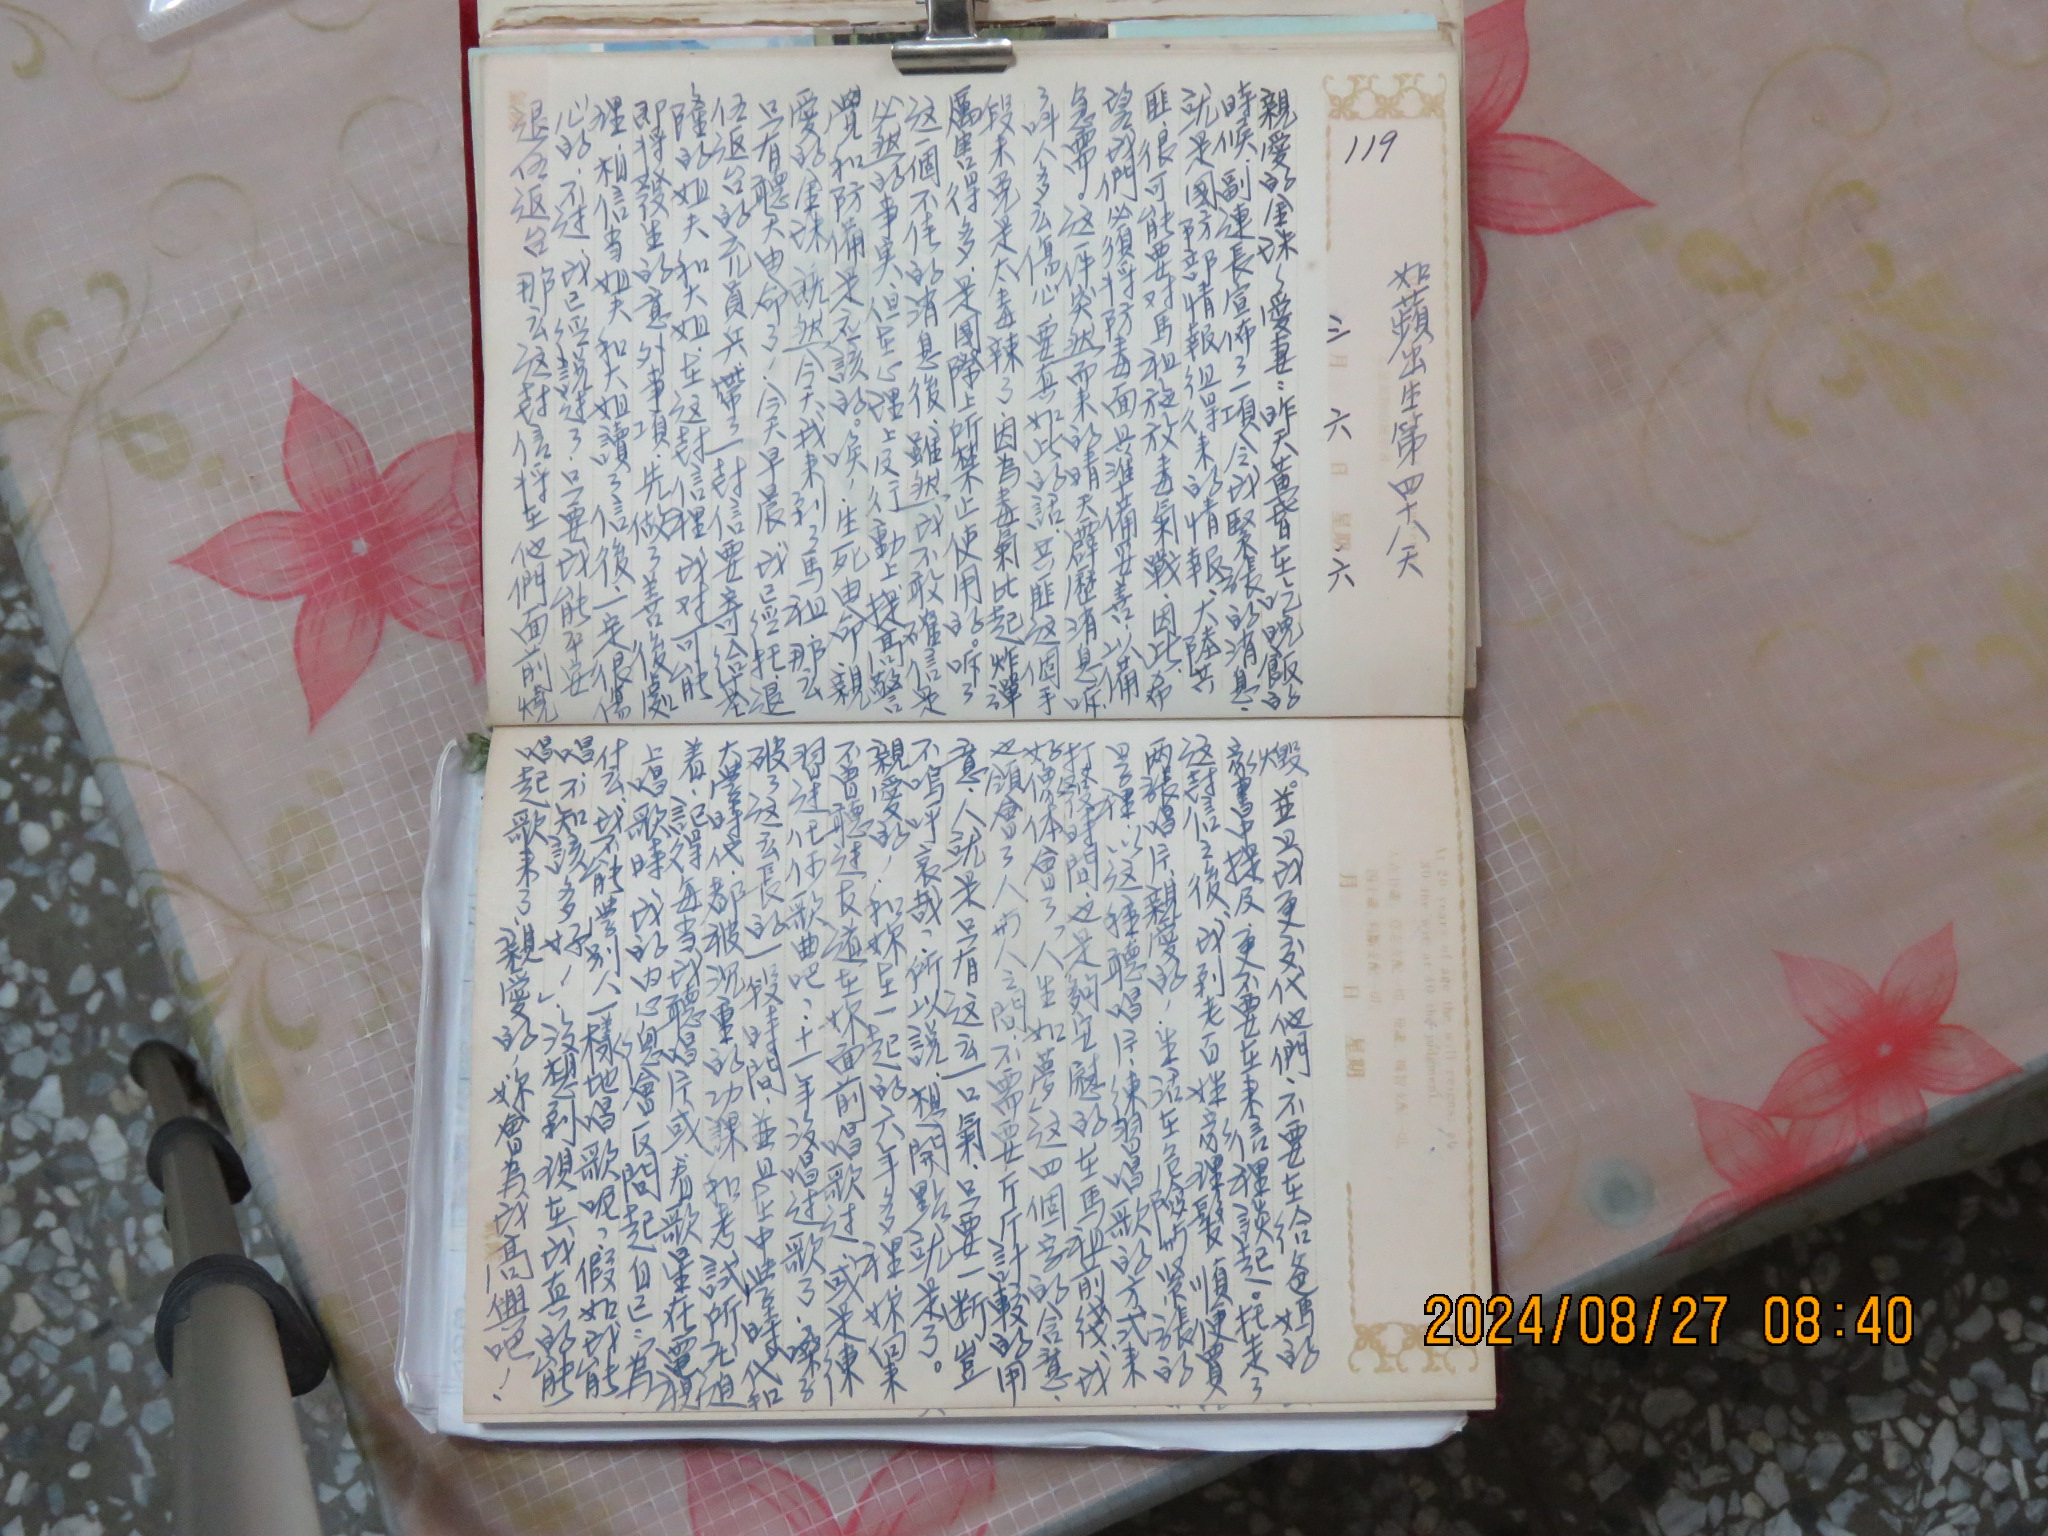 119
如蘋出生第四十八天
三月六日星期六
親愛的金珠～愛妻：昨天黃昏在吃晚飯的
時候，副連長宣佈了一項令我緊張的消息，
就是國防部情報組得來的情報，大陸共
匪很可能要對馬祖施放毒氣戰，因此，希
望我們必須將防毒面具準備妥善以備
急需。這一件突然而來的晴天霹靂消息嚇
了叫人多么傷心，要真如此的話，共匪這個手
段未免是太毒辣了，因為毒氣比起炸彈
厲害得多，是國際上所禁止使用的。聽了
這一個不佳的消息後，雖然我不敢確信是
必然的事實，但在心理上及行動上提高警
覺和防備是應該的。唉！生死由命，親
愛的金珠，既然今天我來到了馬祖，那么
只有聽天由命了！今天早晨我已經托退
伍返台的充員兵帶了一封信要寄給基
隆的姐夫和大姐，在這封信裡，我對可能
即將發生的意外事項，先做了善後處
理，相信當姐夫和大姐讀了信後，一定很傷
心的，不過，我已經說過了，只要我能平安
退伍返台，那么這封信將在他們面前燒
燬。並且我更交代他們，不要在給爸媽的
家書中提及，更不要在來信裡談起。托走了
這封信之後，我到老百姓家理髮，順便買
兩張唱片，親愛的！生活在危險與緊張的
果裡，以這種聽唱片、練習唱歌的方式來
打發時間，也是夠安慰的，在馬祖前線，我
好像体會了「人生如夢」這四個字的含意，
也領會了人與人之間，不需要斤斤計較的用
意，人就是只有這么一口氣，只要一斷豈
不嗚呼哀哉，所以說，想開點就是了。
親愛的！和妳在一起的六年多裡，妳從來
不曾聽過友道在妳面前唱歌過，或是練
習過任何歌曲吧，十一年沒唱過歌了，嗓子
破了這么長的一段時間，並且在中學時代和
大學時代，都被沉重的功課和考試所充迫
着，記得每當我聽唱片或看歌星在電視
上唱歌時，我的內心總會反問起自己「為
什么我不能學別人一樣地唱歌呢，假如我能
唱，不知該多好！」沒想到現在我真的能
唱起歌來了，親愛的！妳會為我高興吧！
月 日 星期
2024/08/27 08:40